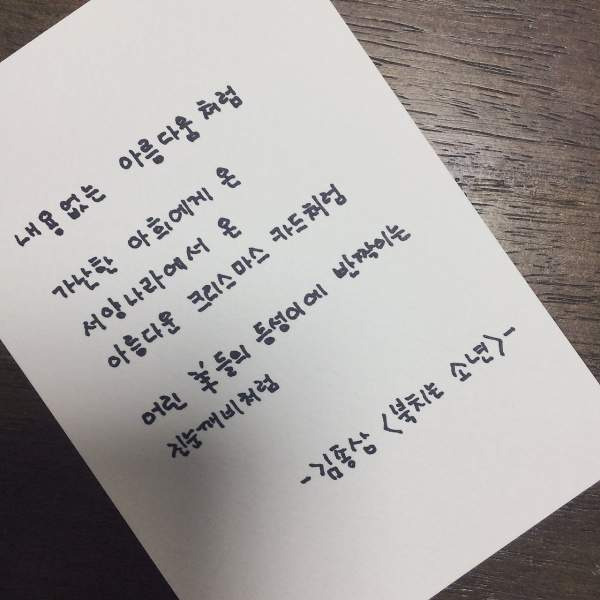 내용 없는 아름다움처럼
가난한 아희에게 온
서양나라에서 온
아름다운 크리스마스 카드처럼
어린 羊들의 등성이에 반짝이는
진눈깨비처럼
-김종삼 <북치는 소년>-